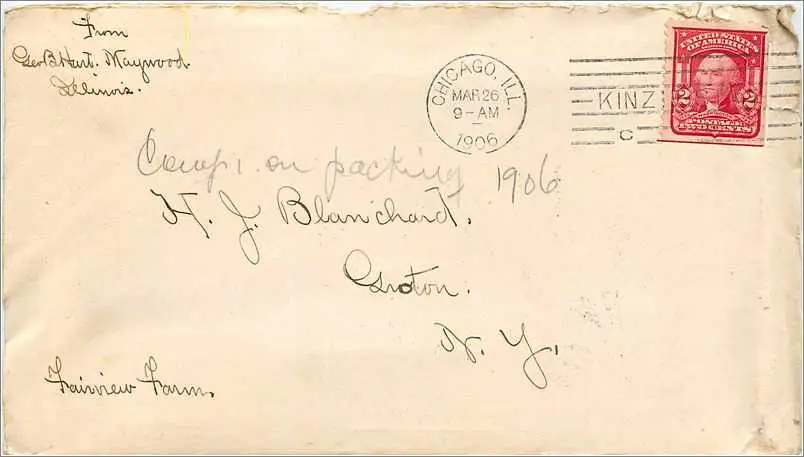 From
Geo B Hart. Maywood.
Illinois.
CHICAGO, ILL.
MAR 26
9-AM
1906
KINZ
C
UNITED STATES
OF AMERICA
2 2
POSTAGE
TWO CENTS
on packing 1906
H. J. Blanchard.
Groton.
N. Y.
Fairview Farm.